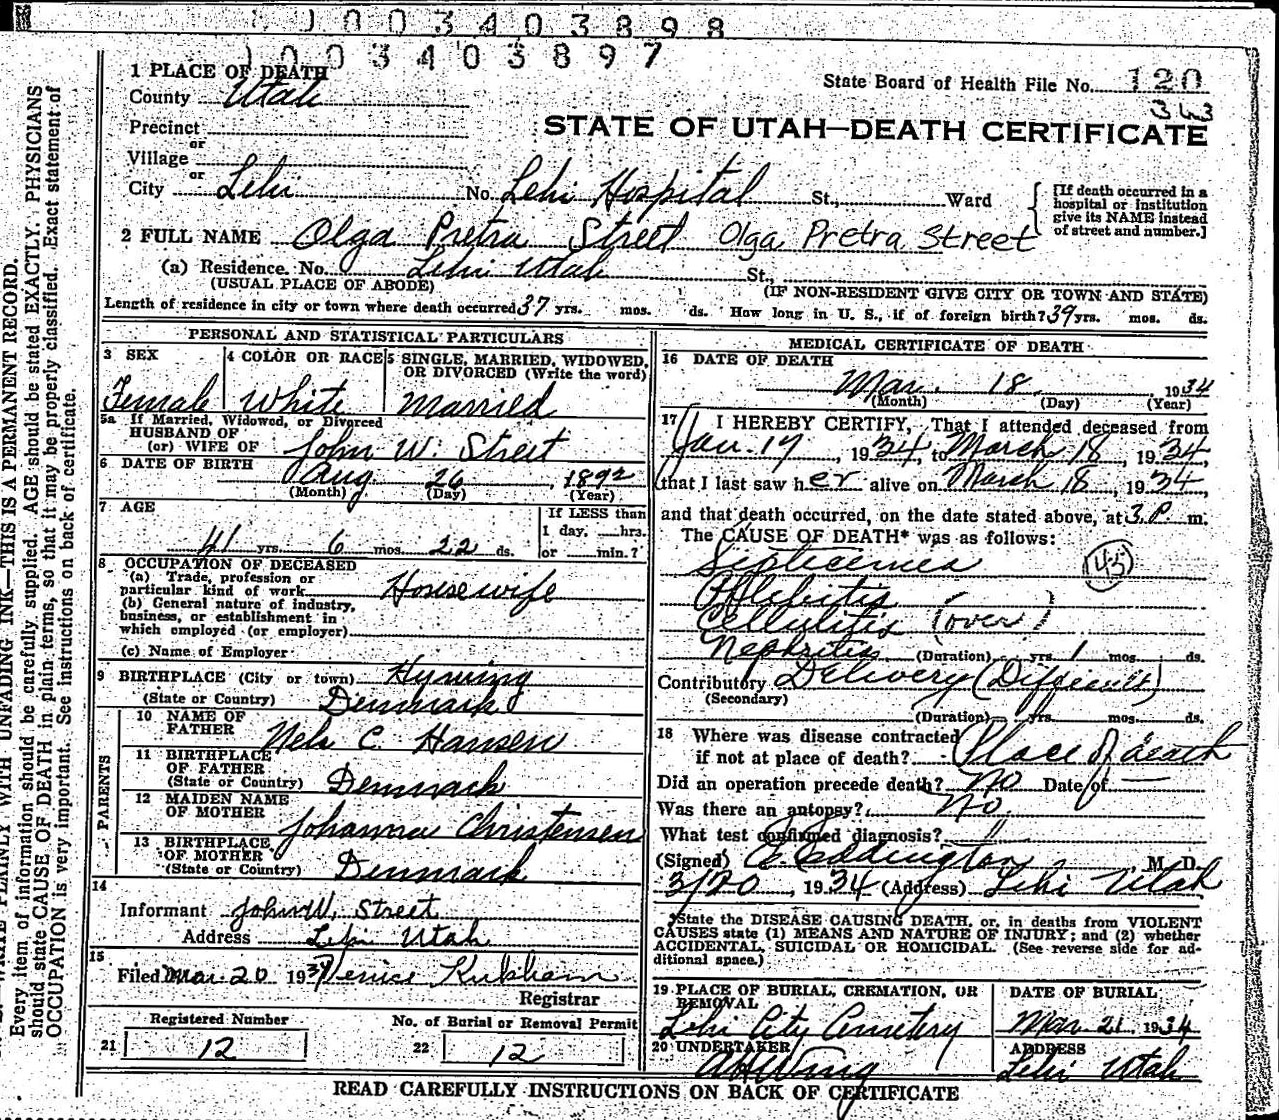 1003403898
1003403897
1 PLACE OF DEATH
County Utah
State Board of Health File No. 120
343
Precinct
or
Village
or
STATE OF UTAH—DEATH CERTIFICATE
City Lehi No. Lehi Hospital St., Ward
[If death occurred in a hospital or institution give its NAME instead of street and number.]
2 FULL NAME Olga Pretra Street Olga Pretra Street
(a) Residence. No. Lehi Utah St.,
(USUAL PLACE OF ABODE) (IF NON-RESIDENT GIVE CITY OR TOWN AND STATE)
Length of residence in city or town where death occurred 37 yrs. mos. ds. How long in U. S., if of foreign birth? 39 yrs. mos. ds.
PERSONAL AND STATISTICAL PARTICULARS
3 SEX Female
4 COLOR OR RACE White
5 SINGLE, MARRIED, WIDOWED, OR DIVORCED (Write the word) Married
5a If Married, Widowed, or Divorced
HUSBAND OF
(or) WIFE OF John W. Street
6 DATE OF BIRTH Aug 26, 1892
(Month) (Day) (Year)
7 AGE
41 yrs. 6 mos. 22 ds.
If LESS than
1 day, hrs.
or min.?
8 OCCUPATION OF DECEASED
(a) Trade, profession or
particular kind of work Housewife
(b) General nature of industry,
business, or establishment in
which employed (or employer)
(c) Name of Employer
9 BIRTHPLACE (City or town)
(State or Country) Denmark
PARENTS
10 NAME OF
FATHER Nels C. Hansen
11 BIRTHPLACE
OF FATHER
(State or Country) Denmark
12 MAIDEN NAME
OF MOTHER Johanna Christensen
13 BIRTHPLACE
OF MOTHER
(State or Country) Denmark
14
Informant John W. Street
Address Lehi Utah
15
Filed Mar. 20 1934
Registrar
Registered Number
21 12
No. of Burial or Removal Permit
22 12
MEDICAL CERTIFICATE OF DEATH
16 DATE OF DEATH
Mar. 18, 1934
(Month) (Day) (Year)
17 I HEREBY CERTIFY, That I attended deceased from
Jan. 17, 1934, to March 18, 1934,
that I last saw her alive on March 18, 1934,
and that death occurred, on the date stated above, at 3 P. m.
The CAUSE OF DEATH* was as follows:
Septicemea (45)
Phlebitis
Cellulitis (over)
Nephritis (Duration) yrs. 1 mos. ds.
Contributory Delivery (Difficult)
(Secondary)
(Duration) yrs. mos. ds.
18 Where was disease contracted
if not at place of death? Place of death
Did an operation precede death? No Date of —
Was there an autopsy? No.
What test confirmed diagnosis? "
(Signed) Eddington M. D.
3/20, 1934 (Address) Lehi Utah
*State the DISEASE CAUSING DEATH, or, in deaths from VIOLENT
CAUSES state (1) MEANS AND NATURE OF INJURY; and (2) whether
ACCIDENTAL, SUICIDAL OR HOMICIDAL. (See reverse side for ad-
ditional space.)
19 PLACE OF BURIAL, CREMATION, OR
REMOVAL
Lehi City Cemetery
DATE OF BURIAL
Mar. 21 1934
20 UNDERTAKER
ADDRESS
Lehi Utah
READ CAREFULLY INSTRUCTIONS ON BACK OF CERTIFICATE
WRITE PLAINLY WITH UNFADING INK—THIS IS A PERMANENT RECORD.
Every item of information should be carefully supplied. AGE should be stated EXACTLY. PHYSICIANS
should state CAUSE OF DEATH in plain terms, so that it may be properly classified. Exact statement of
OCCUPATION is very important. See instructions on back of certificate.